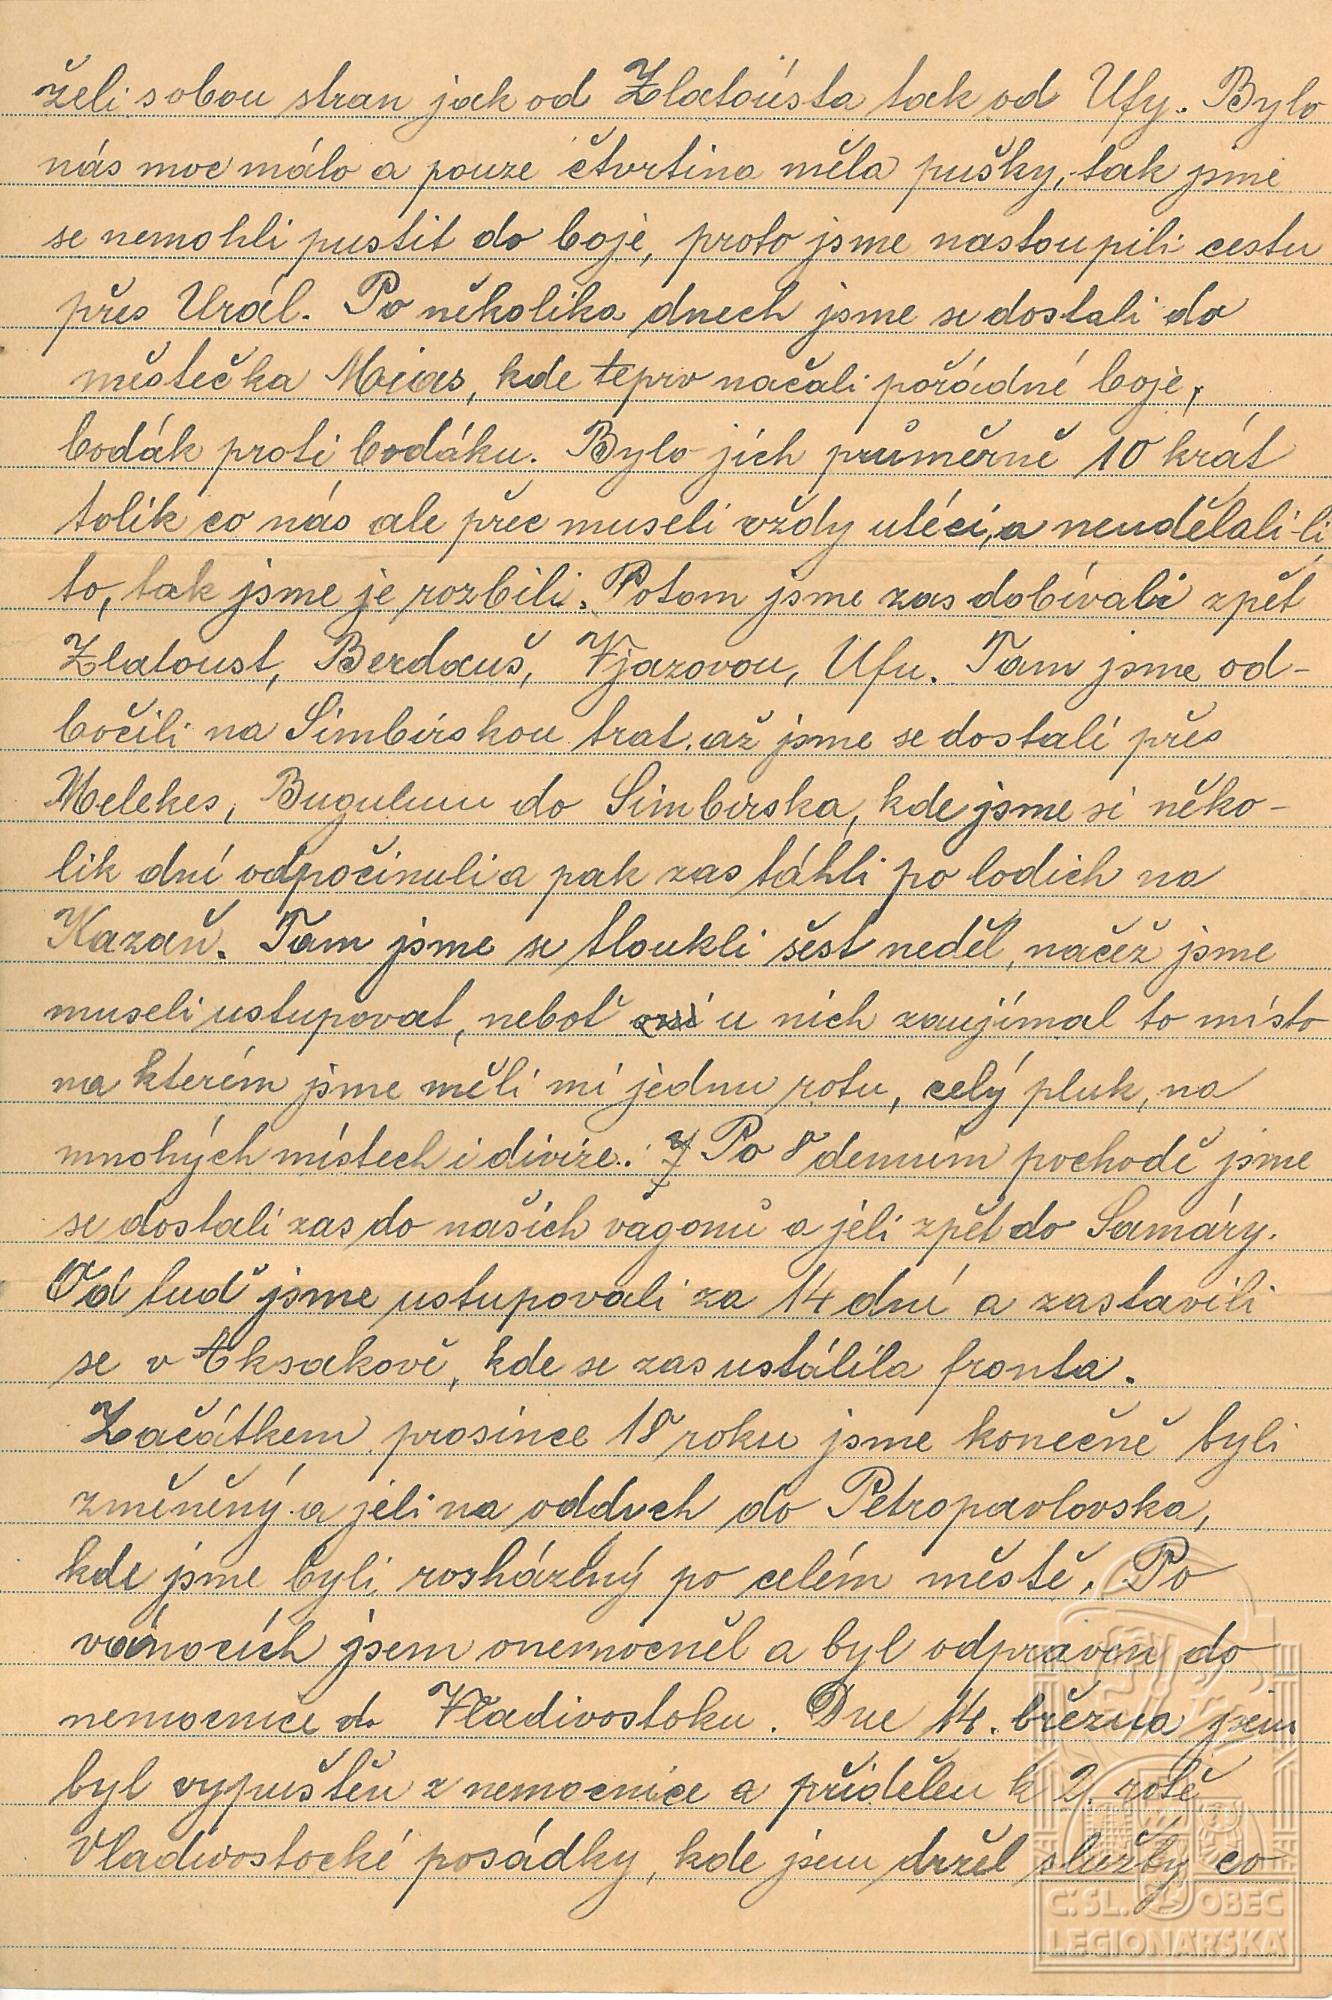 želi s obou stran jak od Zlatoústa tak od Ufy. Bylo
nás moc málo a pouze čtvrtina měla pušky, tak jsme
se nemohli pustit do boje, proto jsme nastoupili cestu
přes Urál. Po několika dnech jsme se dostali do
městečka Mias, kde teprv načali pořádné boje,
bodák proti bodáku. Bylo jich průměrně 10 krát
tolik co nás ale přec museli vždy utéci, a neudělali-li
to, tak jsme je rozbili. Potom jsme zas dobívali zpět
Zlatoust, Berdauš, Vjazovou, Ufu. Tam jsme od-
bočili na Simbirskou trat. až jsme se dostali přes
Melekes, Bugulmu do Simbirska, kde jsme si něko-
lik dní odpočinuli a pak zas táhli po lodich na
Kazaň. Tam jsme se tloukli šest neděl, načež jsme
museli ustupovat, neboť u nich zaujímal to místo
na kterém jsme měli mi jednu rotu, celý pluk, na
mnohých místech i divize. Po 8 denním pochodě jsme
se dostali zas do našich vagonů a jeli zpět do Samáry.
Od tuď jsme ustupovali za 14 dní a zastavili
se v Aksakově, kde se zas ustálila fronta.
Začátkem prosince 18 roku jsme konečně byli
změněný a jeli na oddych do Petropavlovska,
kde jsme byli rosházený po celém městě. Po
vánocích jsem onemocněl a byl odpraven do
nemocnice do Vladivostoku. Dne 14. března jsem
byl vypuštěn z nemocnice a přidělen k 2. rotě
Vladivostocké posádky, kde jsem držel služby co
Č.SL. OBEC
LEGIONÁŘSKÁ